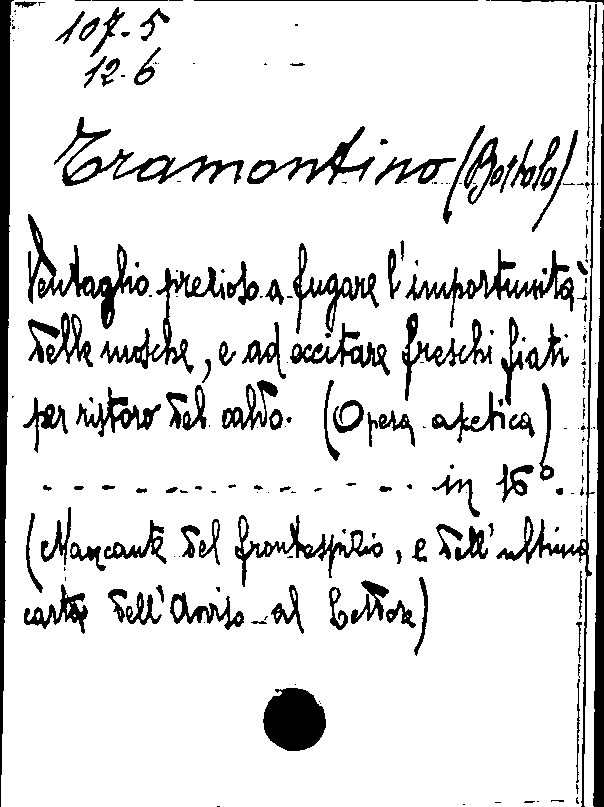 107-5
12.6
Tramontino (Bortolo)
Ventaglio prezioso a fugare l'importunità
delle mosche, e ad eccitare freschi fiati
per ristoro del caldo. (Opera ascetica)
in 16º.
(Mancante del frontespizio, e dell'ultima
carta dell'Avviso al Lettore)